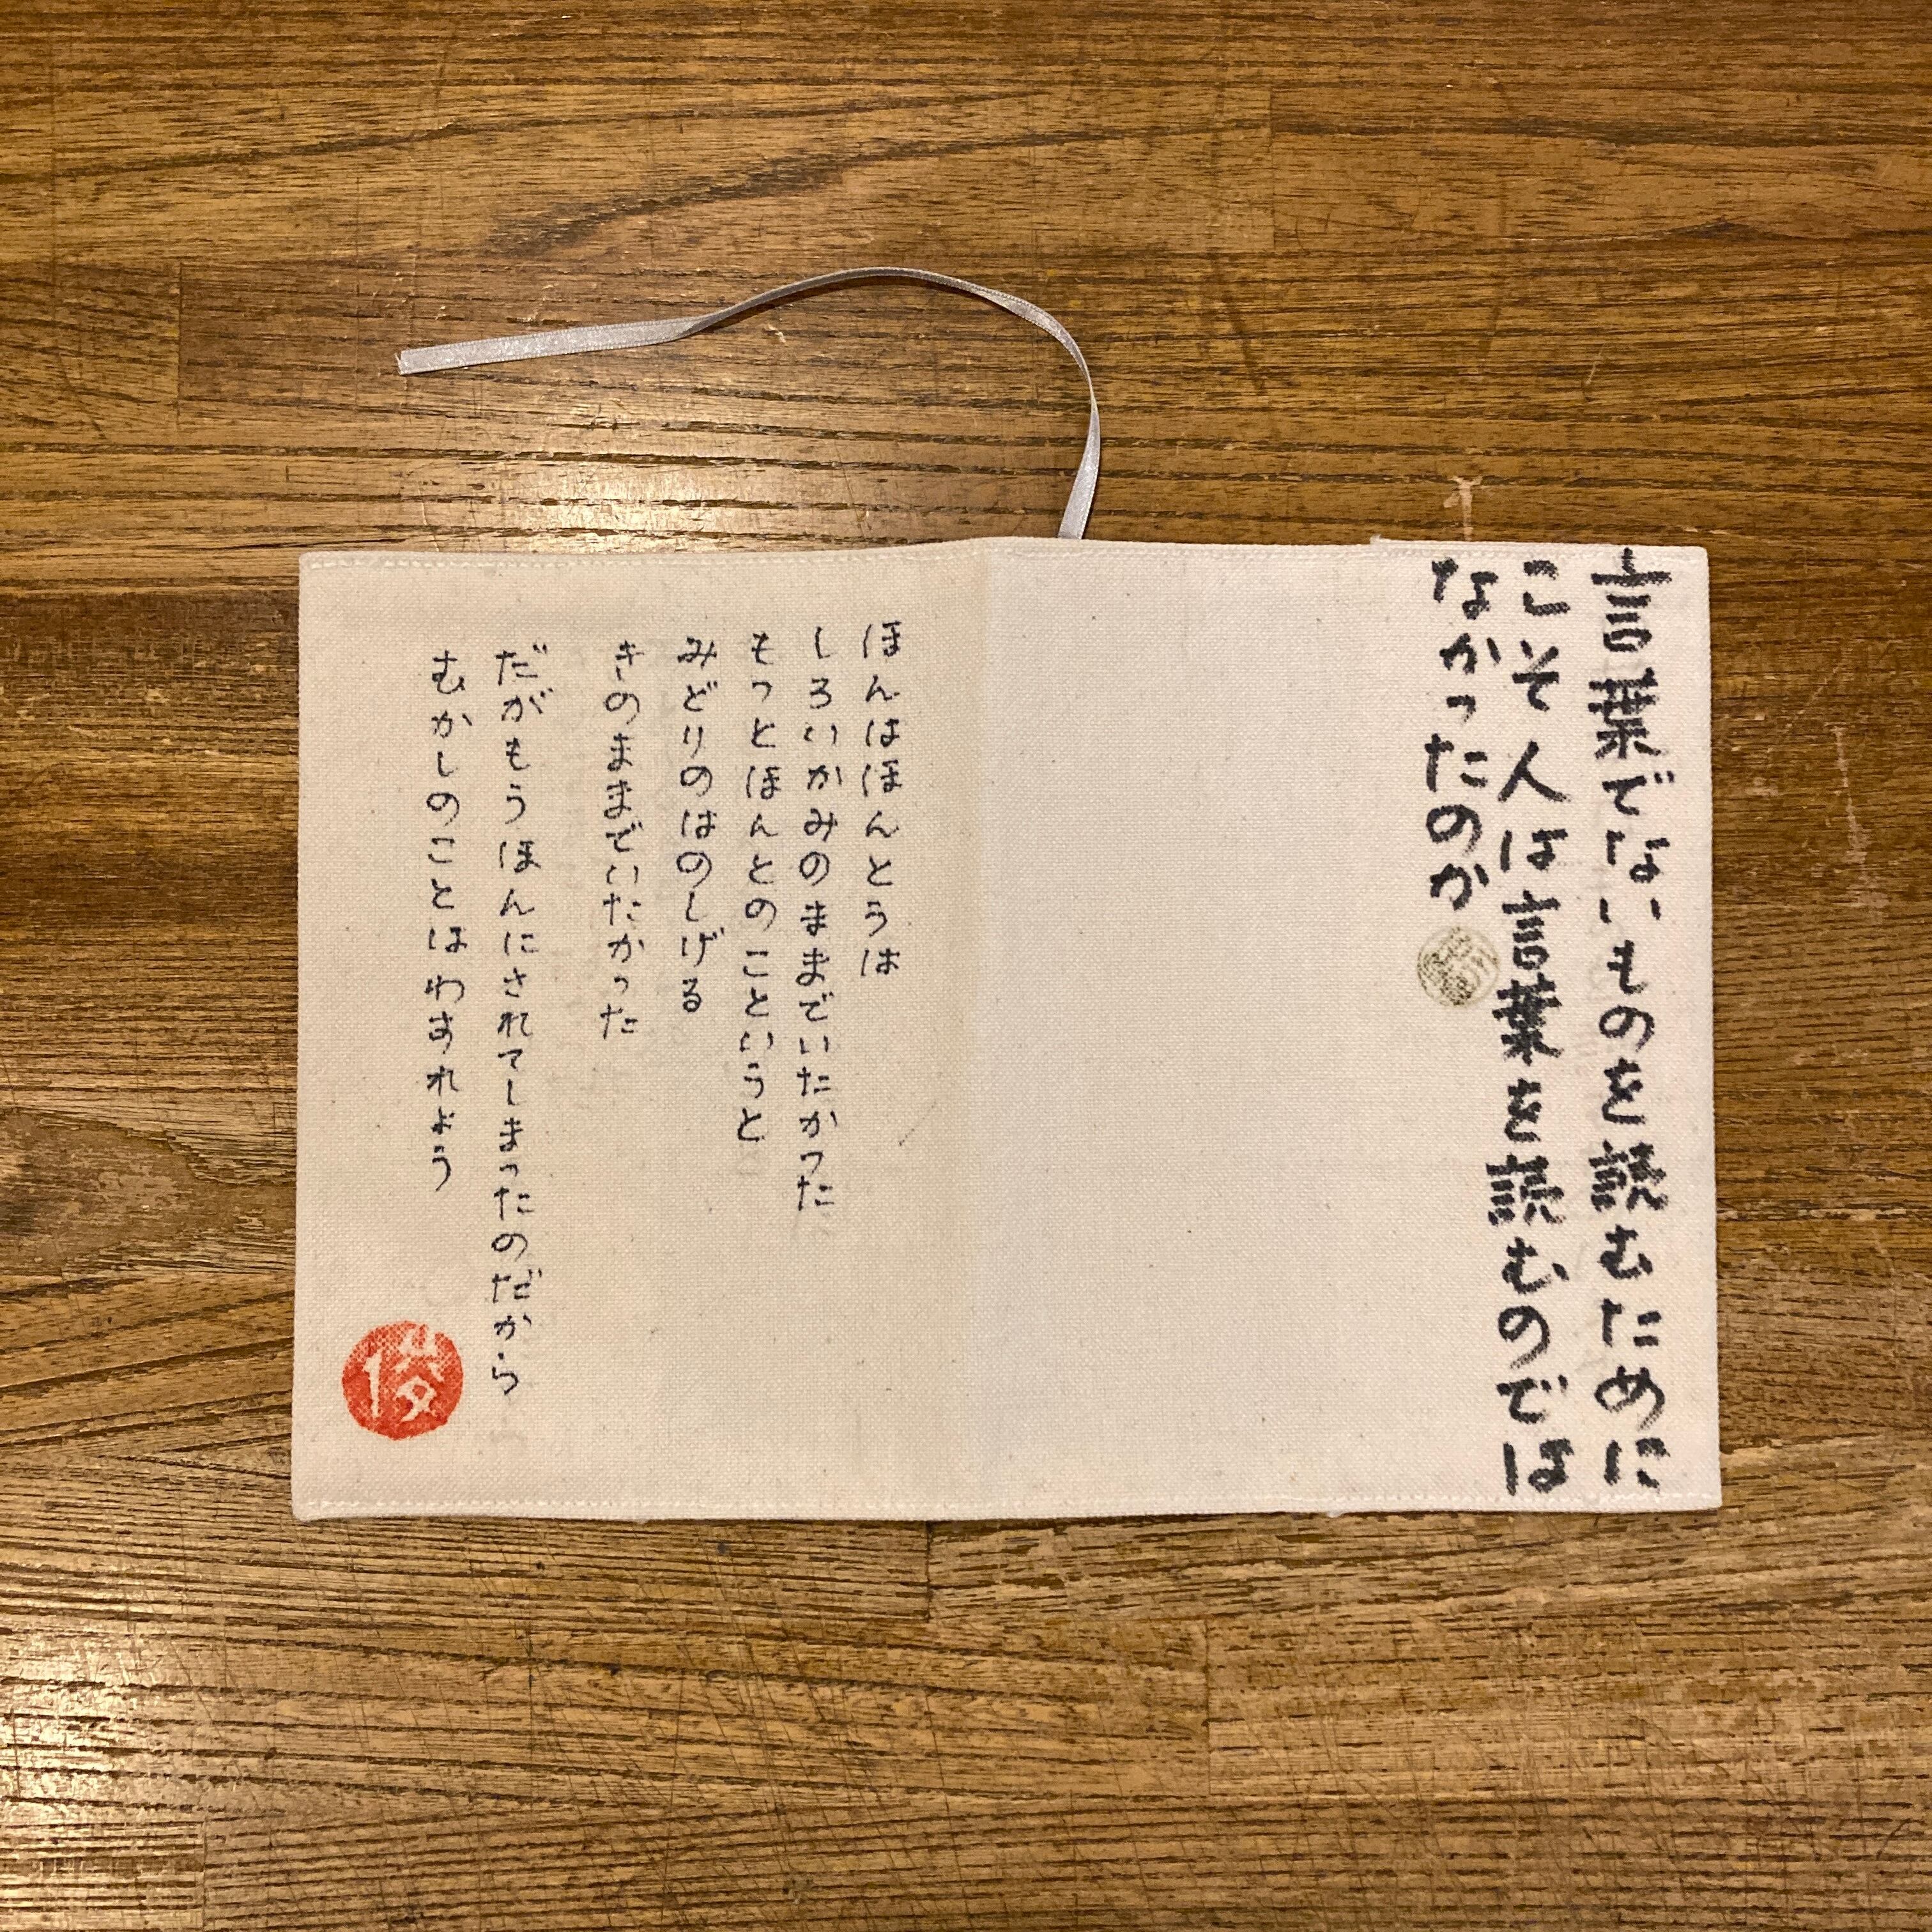 言葉でないものを読むために
こそ人は言葉を読むのでは
なかったのか
ほんはほんとうは
しろいかみのままでいたかった
もっとほんとのこというと
みどりのはのしげる
きのままでいたかった
だがもうほんにされてしまったのだから
むかしのことはわすれよう
俊